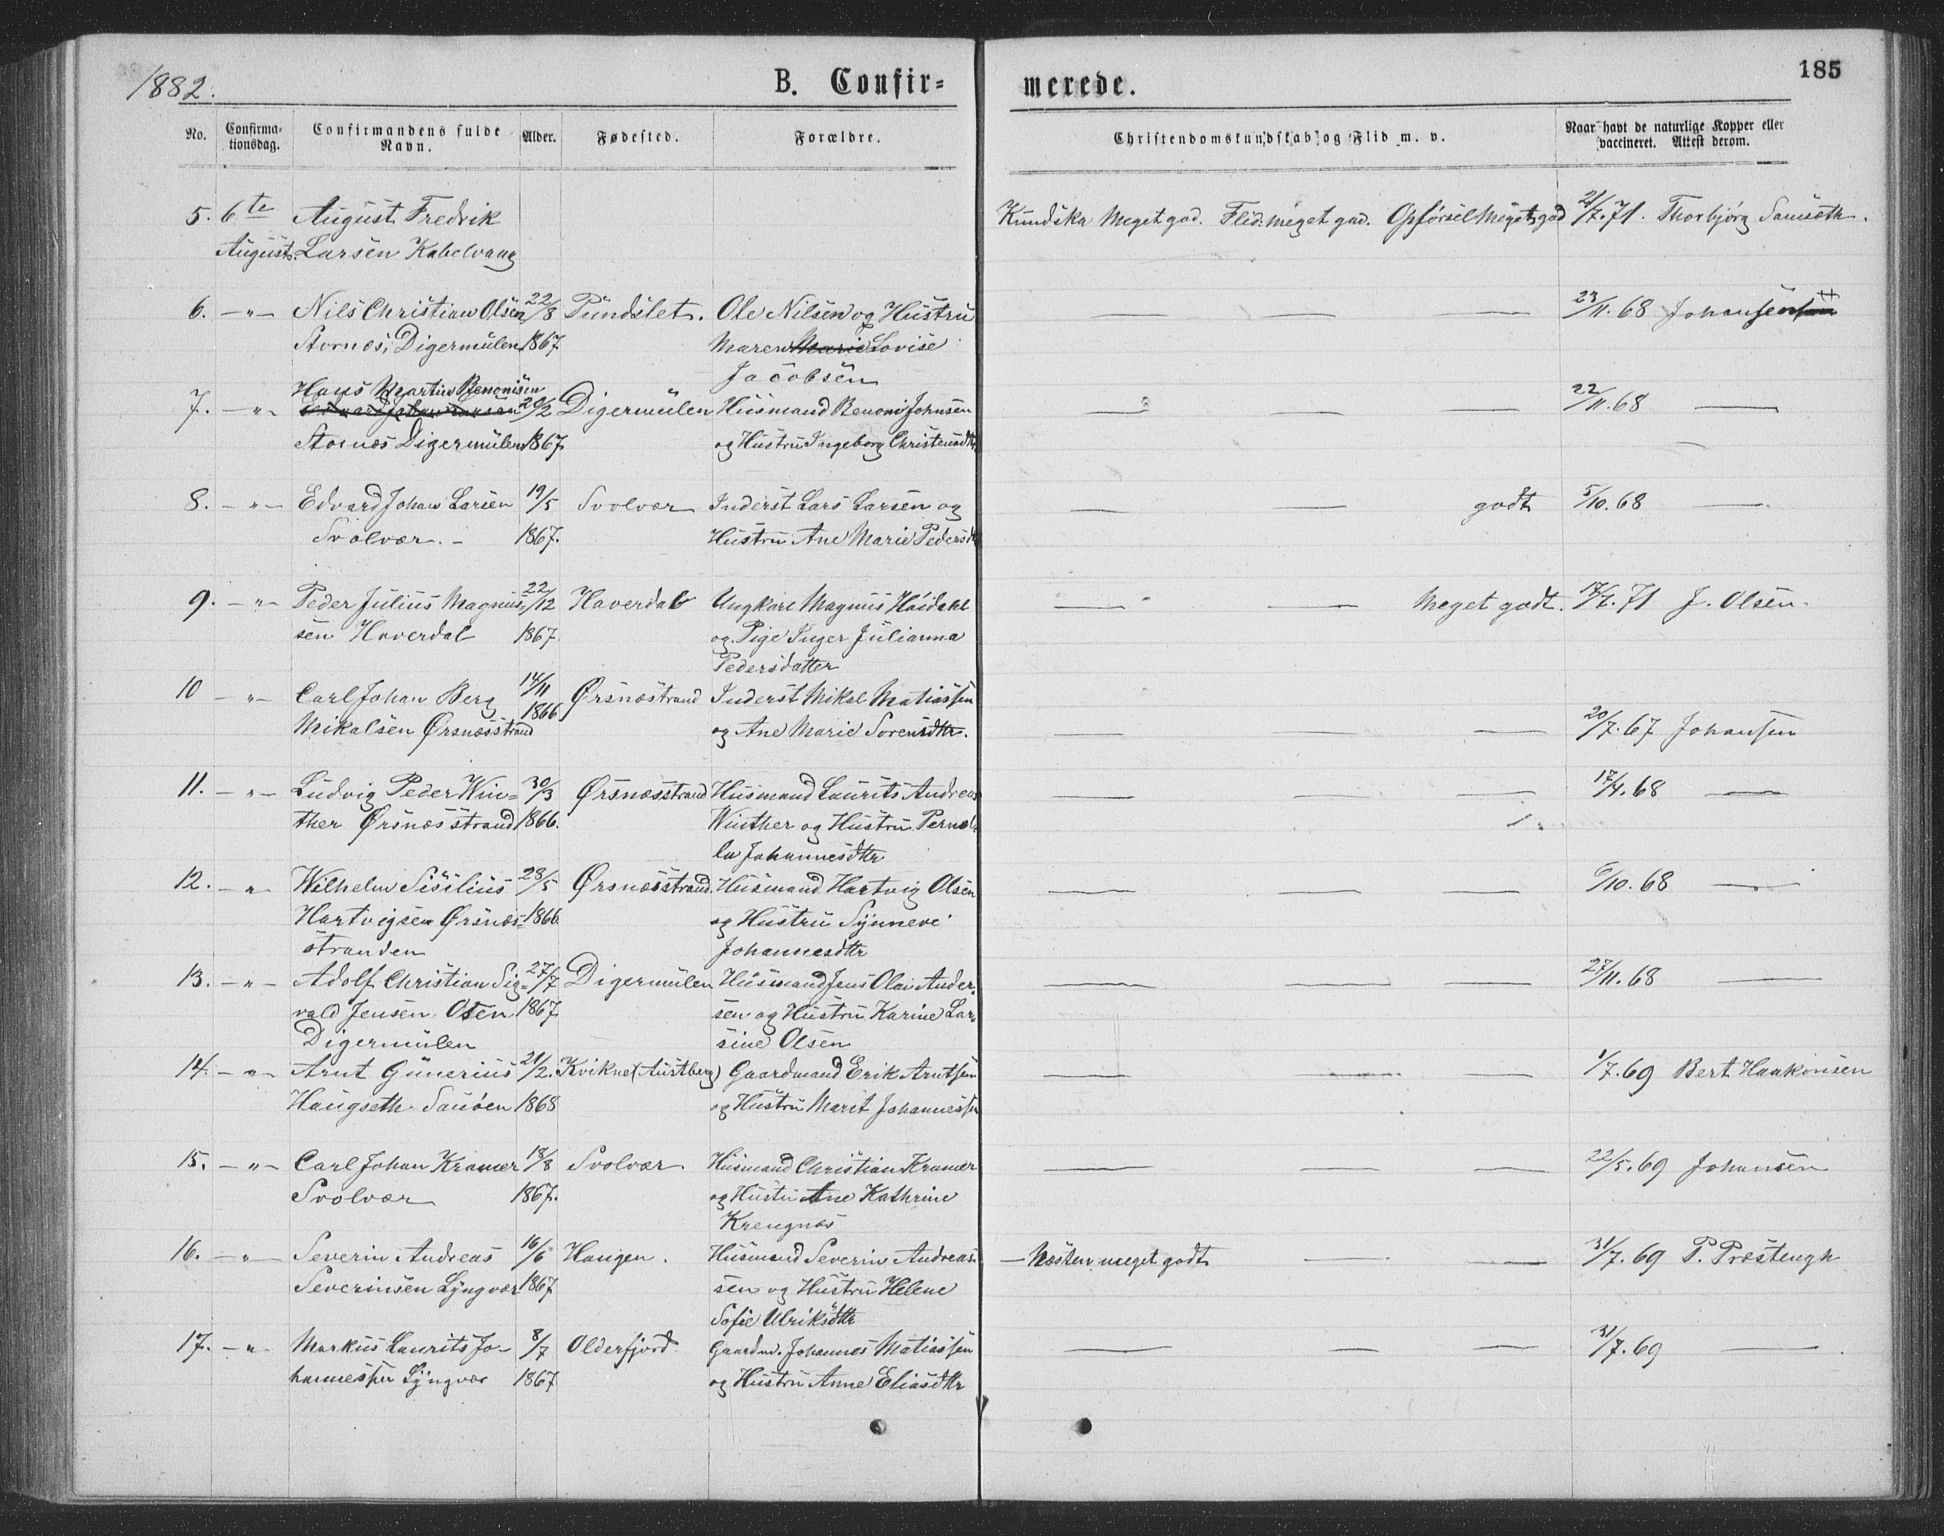 1882.
B. Confir-
merede.
185
No.
Confirma-
tionsdag.
Confirmandens fulde
Navn.
Alder.
Fødested.
Forældre.
Christendomskundskab og Flid m. v.
Naar havt de naturlige Kopper eller
vaccineret. Attest derom.
5. 6te August Fredrik Kundska Meget god. Flid. meget god. Opførsel Meget god 21/7.71. Thorbjørg
August. Larsen Kabelvaag
6. — " — Nils Christian Olsen 22/8 Pundslet. Ole Nilsen og Hustru — — — 23/11.68 Johansen
Stornæs, Digermülen 1867 Maren Marie Lovise
Jacobsen
Hans Martin Benonisen
7. — " — 20/2 Digermülen Husmand Benoni Johnsen — — — 22/11.68 —
Stornæs Digermülen 1867 og Hustru Ingeborg Christensdtr
8. — " — Edvard Johan Larsen 19/5 Svolvær Inderst Lars Larsen og — — godt 5/10.68 —
Svolvær. — 1867. Hustru Ane Marie Pedersdtr
9. — " — Peder Julius Magnus- 22/12 Haverdal Ungkarl Magnus Haidahl — — Meget godt. 17/7.71 J. Olsen.
sen Haverdal 1867 og Pige Inger Julianna
Pedersdatter
10 — " — Carl Johan Berg 14/11 Ørsnæstrand Inderst Mikal Matiassen
Mikalsen Ørsnæsstrand 1866 og Ane Marie Sorensdtr. — — — 20/7.67 Johansen
11. — " — Ludvig Peder Win- 30/3 Ørsnæsstrand Husmand Laurits Andreas — — — 17/4.68 —
ther Ørsnæsstrand 1866. Winther og Hustru Pernel-
la Johannesdtr
12. — " — Wilhelm Sisilius 28/5 Ørsnæsstrand. Husmand Hartvig Olsen — — — 6/10.68 —
Hartvigsen Ørsnæs- 1866 og Hustru Synneve
stranden Johannesdtr
13. — " — Adolf Christian Sig- 27/7 Digermülen Husmand Jens Olai Ander- — — — 27/11.68 —
vald Jensen Osen 1867 sen og Hustru Karine Lar-
Digermülen sine Olsen
14. — " — Arnt Günerius 21/2. Kvikne (Austberg) Gaardmand Erik Arntsen — — — 1/7.69 Bert Haakonsen
Haugseth 1868 og Hustru Marit Johannessen
15. — " — Carl Johan Kramer 18/8 Svolvær Husmand Christian Kramer — — — 22/5.69 Johansen
Svolvær 1867. og Hustru Ane Kathrine
Krengnæs
16. — " — Severin Andreas 16/6 Haugen. Husmand Severin Andreas- — Næsten meget godt — — 31/7.69 P. Præstengh
Severinsen Lyngvær 1867 sen og Hustru Helene
Sofie Ulriksdtr
17. — " — Markus Laurits Jo- 8/7 Olderfjord Gaardm. Johannes Matiassen — — — 31/7.69 —
hannessen Lyngvær 1867 og Hustru Anne Eliasdtr